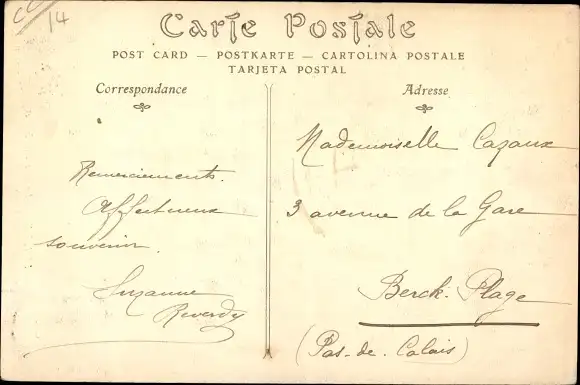 14
Carte Postale
POST CARD — POSTKARTE — CARTOLINA POSTALE
TARJETA POSTAL
Correspondance
Remerciements.
Affectueux
souvenir.
Suzanne
Reverdy
Adresse
Mademoiselle Cazaux
3 avenue de la Gare
Berck-Plage
(Pas-de-Calais)